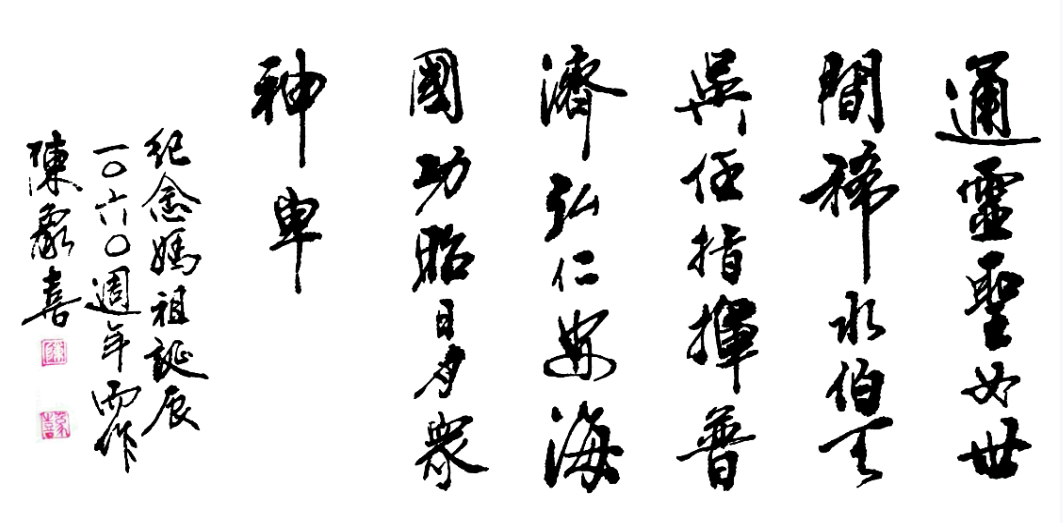 通靈聖女世
間稀水伯天
吳任指揮普
濟弘仁安海
國功昭日月眾
神卑
纪念媽祖誕辰
一〇六〇週年而作
陳豪喜